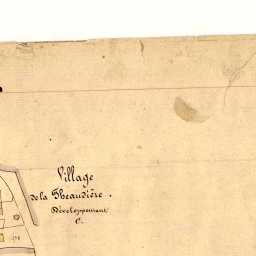 Village
de la Theaudière.
Développement
C.